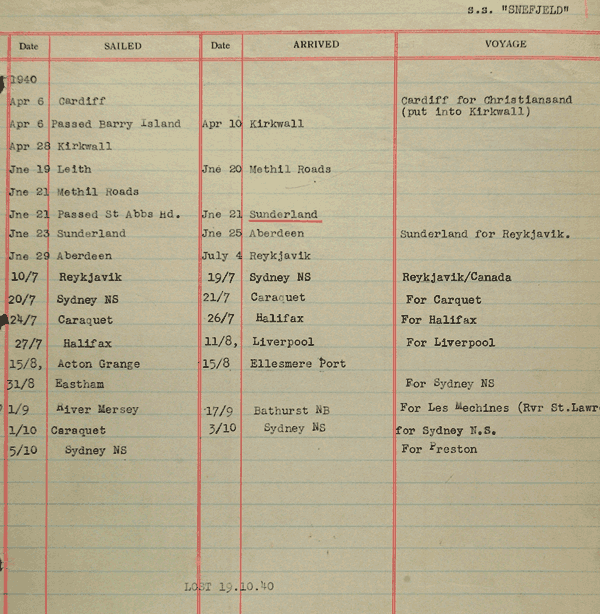 s.s. "SNEFJELD"
Date SAILED Date ARRIVED VOYAGE
1940
Apr 6 Cardiff Cardiff for Christiansand
(put into Kirkwall)
Apr 6 Passed Barry Island Apr 10 Kirkwall
Apr 28 Kirkwall
Jne 19 Leith Jne 20 Methil Roads
Jne 21 Methil Roads
Jne 21 Passed St Abbs Hd. Jne 21 Sunderland
Jne 23 Sunderland Jne 25 Aberdeen Sunderland for Reykjavik.
Jne 29 Aberdeen July 4 Reykjavik
10/7 Reykjavik 19/7 Sydney NS Reykjavik/Canada
20/7 Sydney NS 21/7 Caraquet For Carquet
24/7 Caraquet 26/7 Halifax For Halifax
27/7 Halifax 11/8, Liverpool For Liverpool
15/8, Acton Grange 15/8 Ellesmere Port
31/8 Eastham For Sydney NS
1/9 River Mersey 17/9 Bathurst NB For Les Mechines (Rvr St.Lawr
1/10 Caraquet 3/10 Sydney NS for Sydney N.S.
5/10 Sydney NS For Preston
LOST 19.10.40